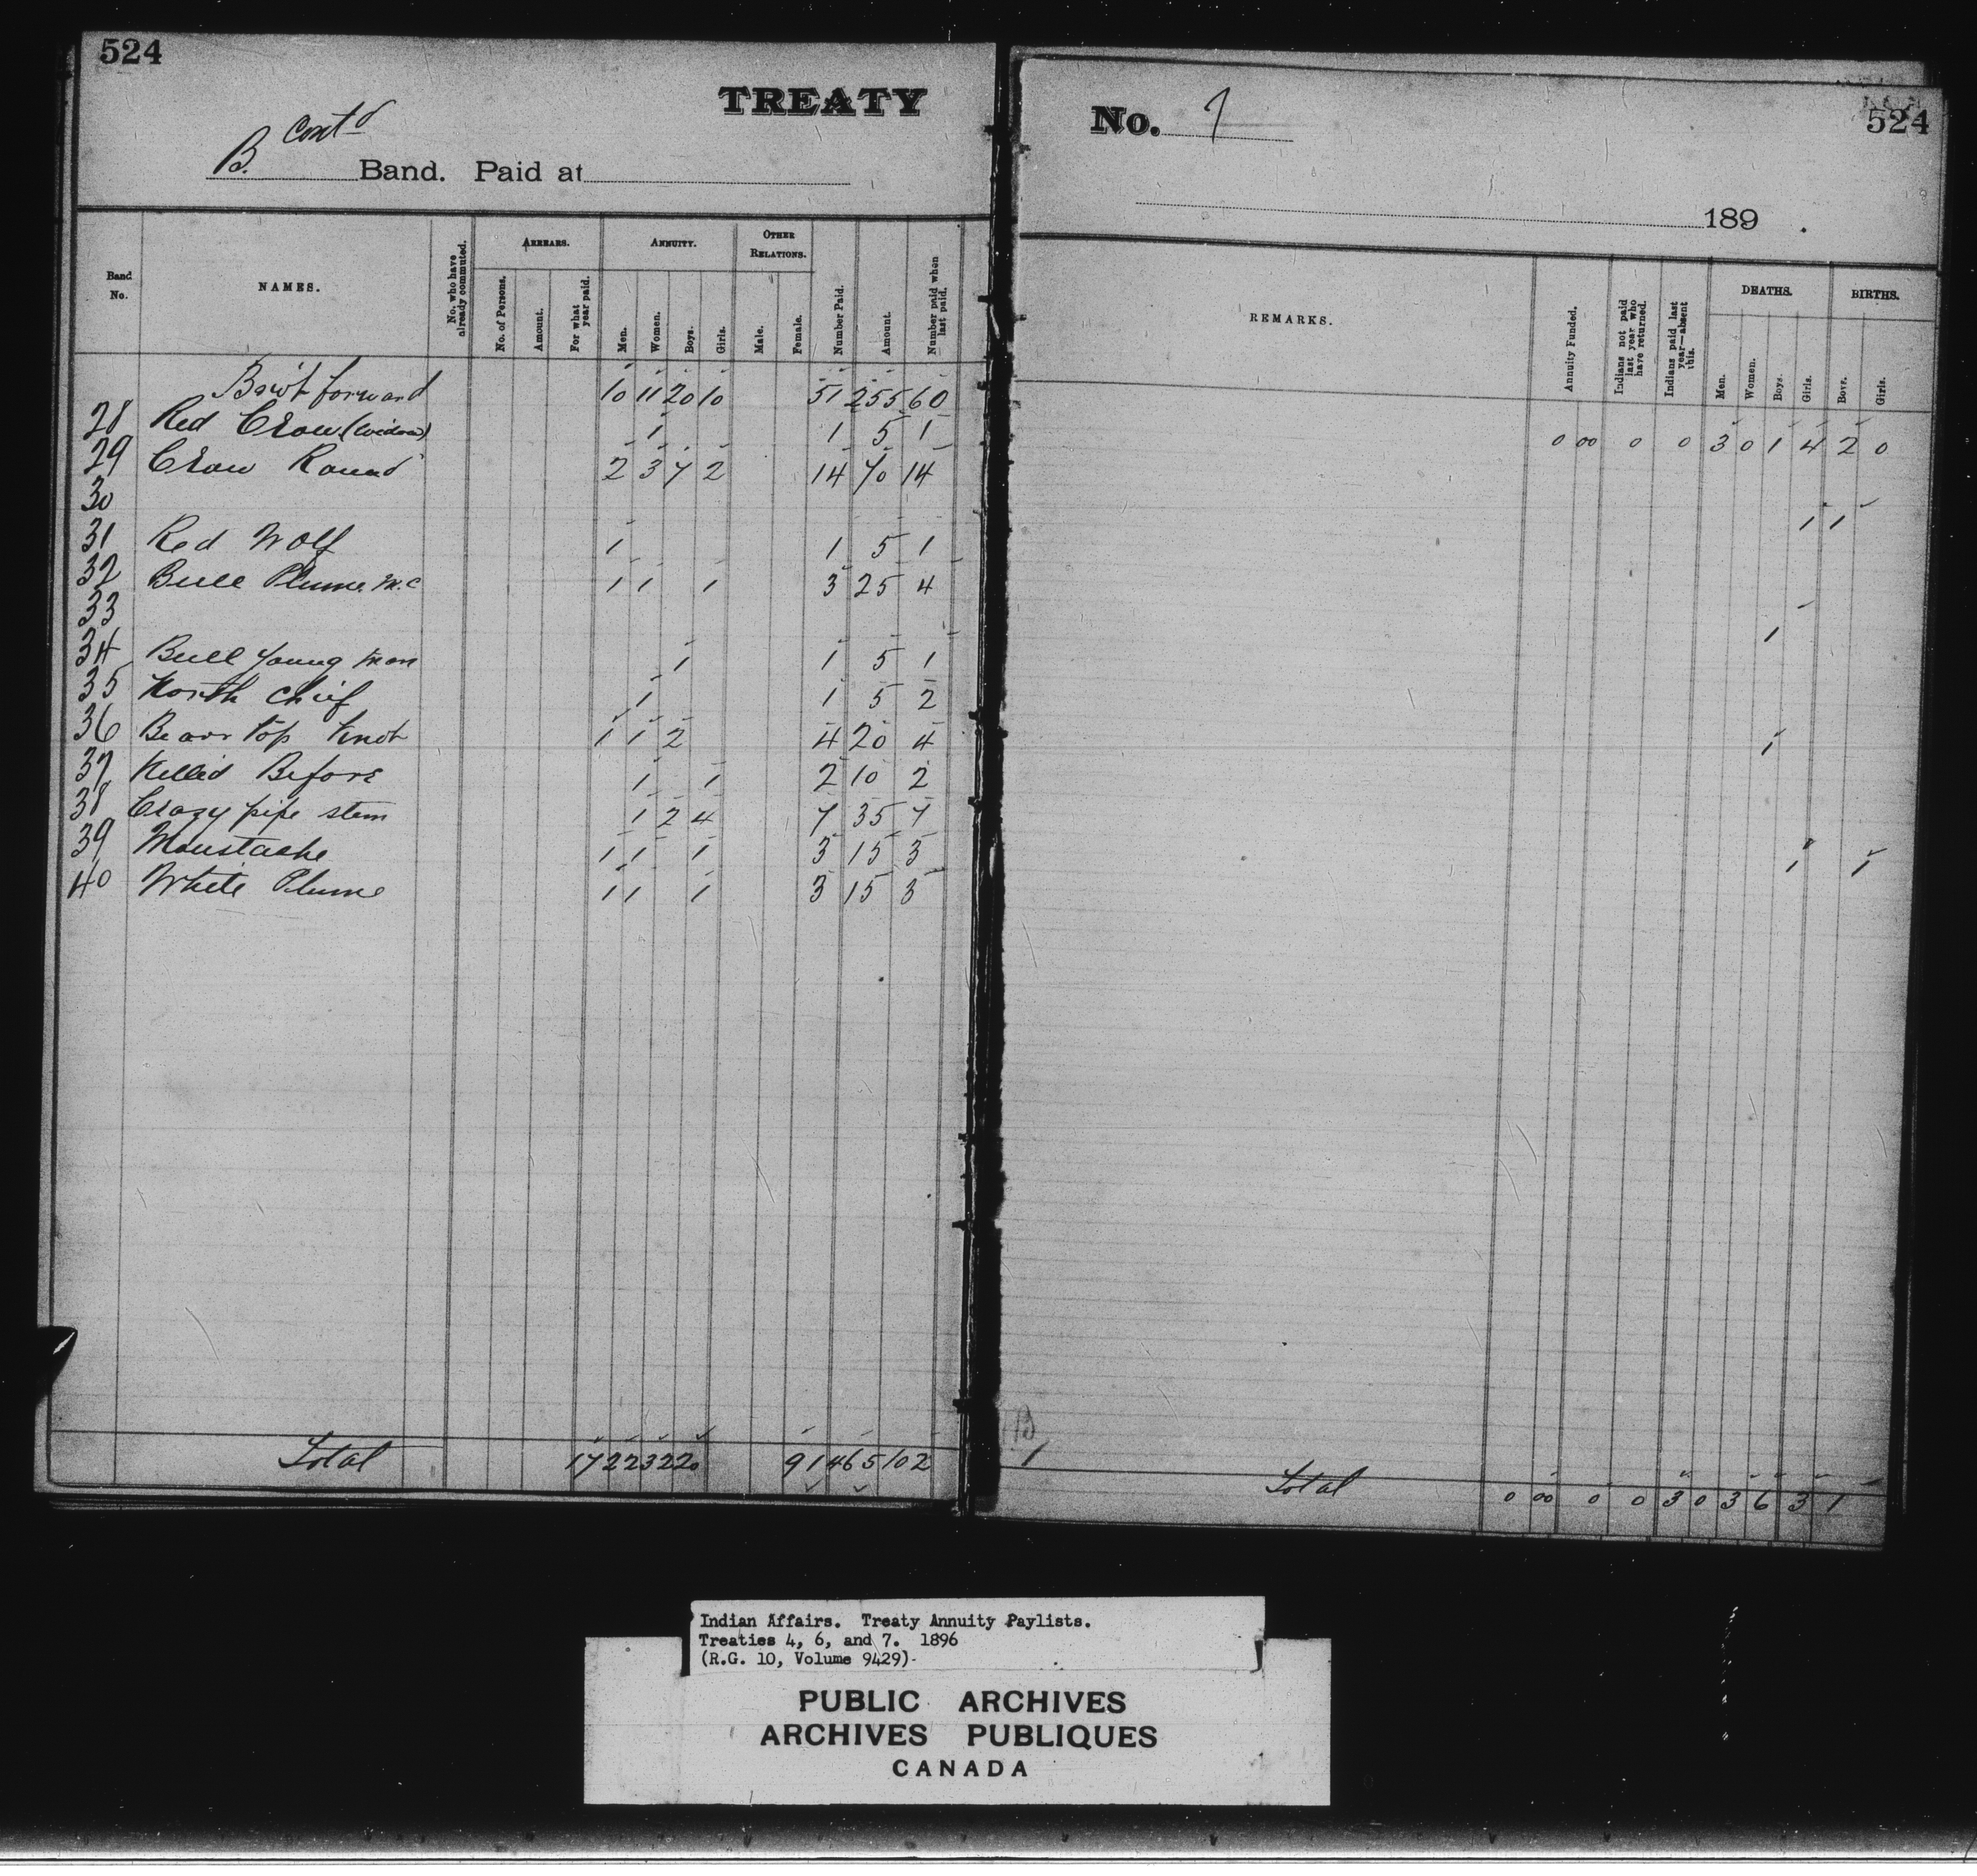 524
TREATY
B. Cont'd Band. Paid at
Band No. NAMES. No. who have already commuted. ARREARS. No. of Persons. Amount. For what year paid. ANNUITY. Men. Women. Boys. Girls. OTHER RELATIONS. Male. Female. Number Paid. Amount. Number paid when last paid.
Bro't forward 10 11 20 10 51 255 60
28 Red Crow (widow) 1 1 5 1
29 Crow Round 2 3 7 2 14 70 14
30
31 Red Wolf 1 1 5 1
32 Bull Plume M.C 1 1 1 3 25 4
33
34 Bull young man 1 1 5 1
35 North Chief 1 1 5 2
36 Bear top knot 1 1 2 4 20 4
37 Killed Before 1 1 2 10 2
38 Crazy pipe stem 1 2 4 7 35 7
39 Moustache 1 1 1 3 15 3
40 White Plume 1 1 1 3 15 3
Total 17 22 32 20 91 465 102
No. 7
524
189
REMARKS. Annuity Funded. Indians not paid last year who have returned. Indians paid last year—absent this. DEATHS. Men. Women. Boys. Girls. BIRTHS. Boys. Girls.
0 00 0 0 3 0 1 4 2 0
1 1
1
1
1 1
B
1
Total 0 00 0 0 3 0 3 6 3 1
Indian Affairs. Treaty Annuity Paylists.
Treaties 4, 6, and 7. 1896
(R.G. 10, Volume 9429)
PUBLIC ARCHIVES
ARCHIVES PUBLIQUES
CANADA